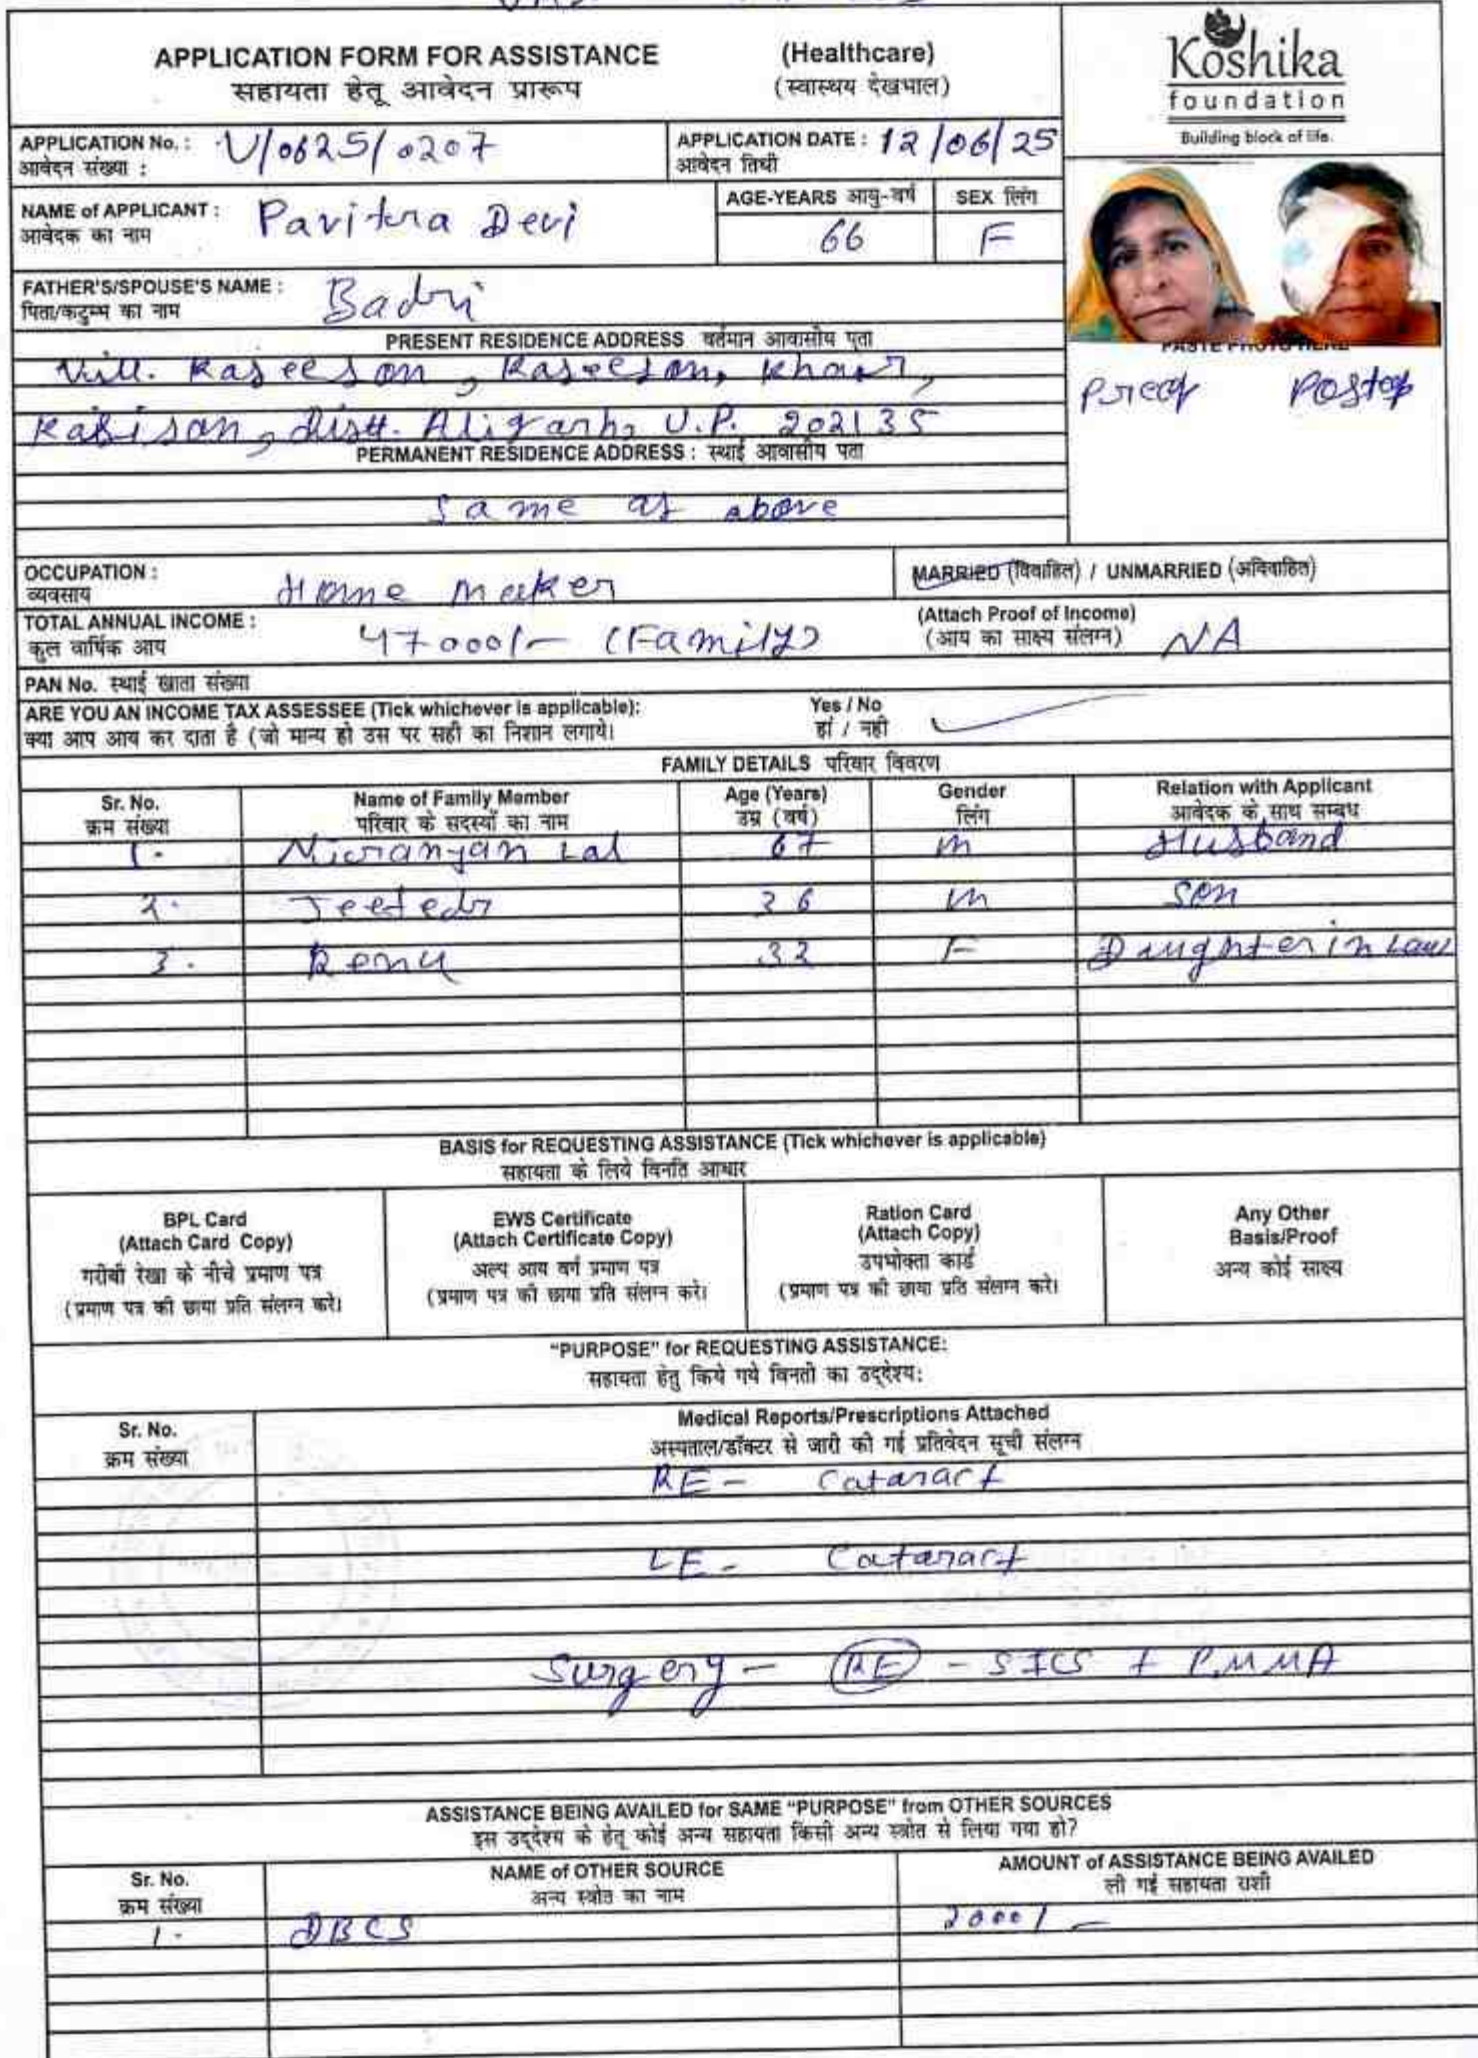 APPLICATION FORM FOR ASSISTANCE (Healthcare)
सहायता हेतू आवेदन प्रारूप (स्वास्थय देखभाल)
Koshika
foundation
Building block of life.
APPLICATION No. : V/0625/0207
आवेदन संख्या :
APPLICATION DATE : 12/06/25
आवेदन तिथी
NAME of APPLICANT : Pavitra Devi
आवेदक का नाम
AGE-YEARS आयु-वर्ष
66
SEX लिंग
F
FATHER'S/SPOUSE'S NAME : Badri
पिता/कटुम्म का नाम
PRESENT RESIDENCE ADDRESS वर्तमान आवासीय पता
Vill. Kaseeson, Kaseeson, Khair,
Kabison, Distt. Aligarh, U.P. 202135
PERMANENT RESIDENCE ADDRESS : स्थाई आवासीय पता
Same as above
PASTE PHOTO HERE
Preop Postop
OCCUPATION : Home maker
व्यवसाय
MARRIED (विवाहित) / UNMARRIED (अविवाहित)
TOTAL ANNUAL INCOME : 47000/- (Family)
कुल वार्षिक आय
(Attach Proof of Income)
(आय का साक्ष्य संलग्न) NA
PAN No. स्थाई खाता संख्या
ARE YOU AN INCOME TAX ASSESSEE (Tick whichever is applicable): Yes / No
क्या आप आय कर दाता है (जो मान्य हो उस पर सही का निशान लगाये। हां / नही
FAMILY DETAILS परिवार विवरण
Sr. No. Name of Family Member Age (Years) Gender Relation with Applicant
क्रम संख्या परिवार के सदस्यों का नाम उम्र (वर्ष) लिंग आवेदक के साथ सम्बध
1. Niranjan Lal 67 M Husband
2. Jeetedr 36 M Son
3. Renu 32 F Daughter in Law
BASIS for REQUESTING ASSISTANCE (Tick whichever is applicable)
सहायता के लिये विनति आधार
BPL Card
(Attach Card Copy)
गरीबी रेखा के नीचे प्रमाण पत्र
(प्रमाण पत्र की छाया प्रति संलग्न करे।
EWS Certificate
(Attach Certificate Copy)
अल्प आय वर्ग प्रमाण पत्र
(प्रमाण पत्र की छाया प्रति संलग्न करे।
Ration Card
(Attach Copy)
उपभोक्ता कार्ड
(प्रमाण पत्र की छाया प्रति संलग्न करे।
Any Other
Basis/Proof
अन्य कोई साक्ष्य
"PURPOSE" for REQUESTING ASSISTANCE:
सहायता हेतु किये गये विनती का उद्देश्य:
Sr. No.
क्रम संख्या
Medical Reports/Prescriptions Attached
अस्पताल/डॉक्टर से जारी की गई प्रतिवेदन सूची संलग्न
RE - Cataract
LE - Cataract
Surgery - RE - SICS + PMMA
ASSISTANCE BEING AVAILED for SAME "PURPOSE" from OTHER SOURCES
इस उद्देश्य के हेतू कोई अन्य सहायता किसी अन्य स्त्रोत से लिया गया हो?
Sr. No. NAME of OTHER SOURCE AMOUNT of ASSISTANCE BEING AVAILED
क्रम संख्या अन्य स्त्रोत का नाम ली गई सहायता राशी
1. DBCS 2000/-